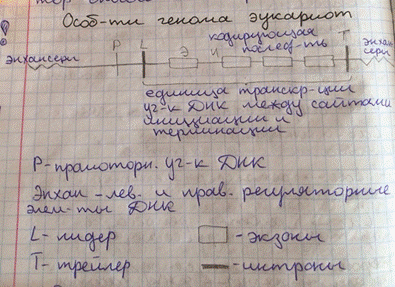 Особ-ти генома эукариот
энхансеры Р L Э И кодирующая послед-ть Т энхан
серы
единица транскр-ции
уч-к ДНК между сайтами
инициации и
терминации
Р-промоторн. уч-к ДНК
Энхан -лев. и прав. регуляторные
элем-ты ДНК
L- лидер - экзоны
Т- трейлер - интроны